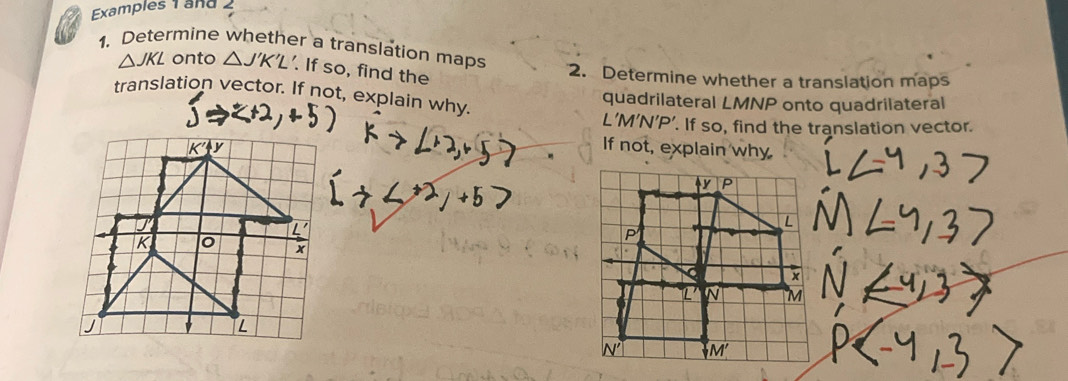 Examples 1 and 2
1. Determine whether a translation maps
△JKL onto △J′K′L′. If so, find the
translation vector. If not, explain why.
J → <+2, +5>
K → <+2, +5>
L → <+2, +5>
K′ y
J′
L′
K
O
x
J
L
2. Determine whether a translation maps
quadrilateral LMNP onto quadrilateral
L′M′N′P′. If so, find the translation vector.
If not, explain why.
L <-4, 3>
M <-4, 3>
N <-4, 3>
P <-4, -3>
y P
L
P′
x
L′ N
M
N′
M′